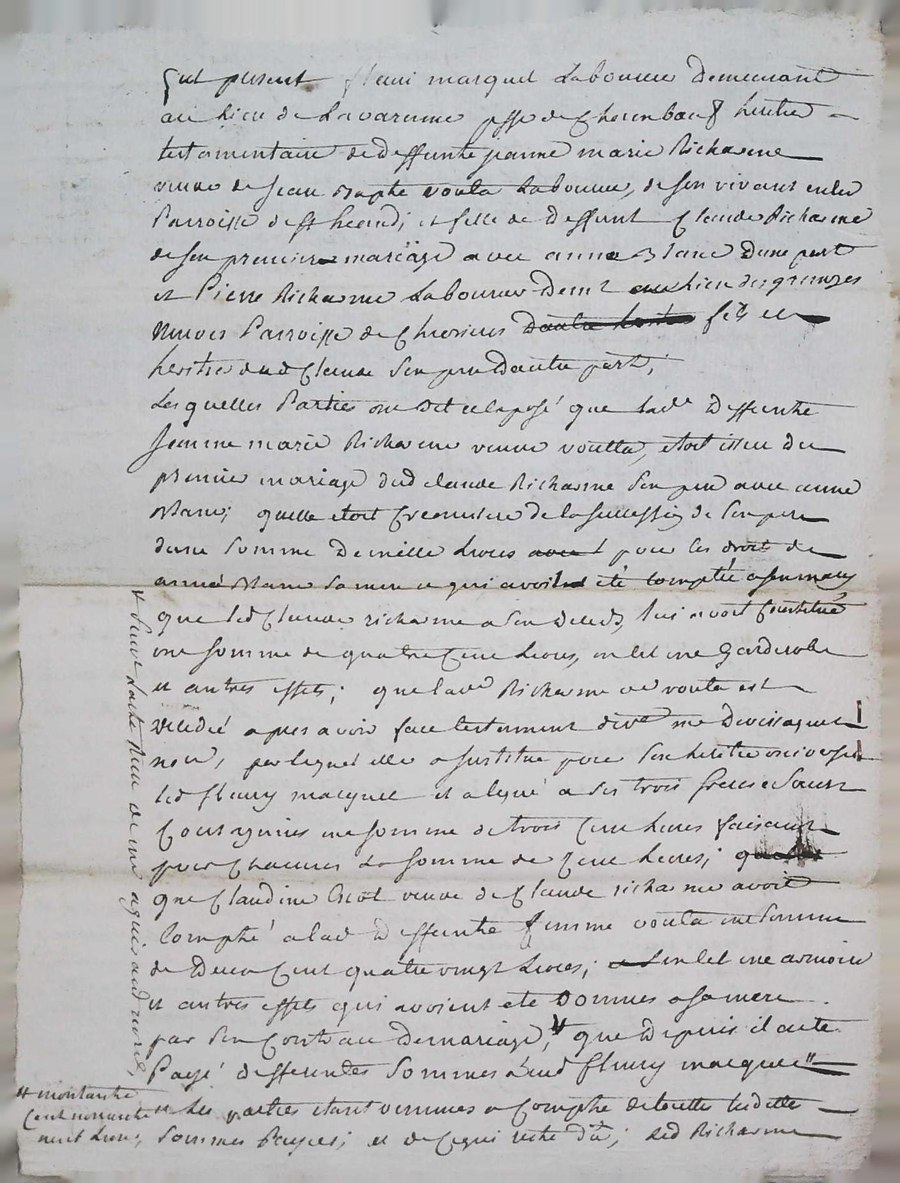 fut present fleuri marquet Laboureur Demeurant
au Lieu de Lavarenne psse de heritier
testamentaire de deffunte jeanne marie Richarme
veuve de Jean voula Laboureur, de son vivant
Parroisse de st heand; et fille de Deffunt Claude Richarme
de son premier mariage avec anne Blanc Dune part
et Pierre Richarme Laboureur Demt au Lieu des granges
neuves Parroisse de fils et
heritier dud Claude Son pere Dautre part;
Les quelles Parties ont dit et exposé que Lade Deffunte
Jeanne marie Richarme veuve voulla, etoit issue du
premier mariage dud claude Richarme Son pere avec anne
Blanc; quelle etoit Creanciere de la Succession de Son pere
dune Somme De mille Livres pour les droits de
anne Blanc Sa mere ce qui avoit eté Compté a
que led Claude richarme a Son Deceds, lui avoit Constitué
une somme de quatre Cent Livres, un lit une Garderobe
et autres effets; que lade Richarme ve voula est
decedé apres avoir fait testament me
par lequel elle a Institué pour Son heritier universel
led fleury marquet et a legué a Ses trois freres et Soeurs
Consanguins une somme de trois Cent Livres faisant
pour Chacun La Somme de Cent Livres;
que Claudine veuve de Claude richarme avoit
Compté a lad Deffunte femme voula une Somme
de Deux Cent quatre vingt Livres; un lit une armoire
et autres effets qui avoient eté Donnés a Sa mere
par Son Contrat De mariage, # que Depuis il a eté
Payé differentes Sommes aud fleury marquet "
Les parties etant venues a Compte de toutes lesdittes
Sommes Payées; et de Ce qui reste dû; led Richarme
# montante
Cent nonante
huit Livres;
+ Suivt Lacte Recu